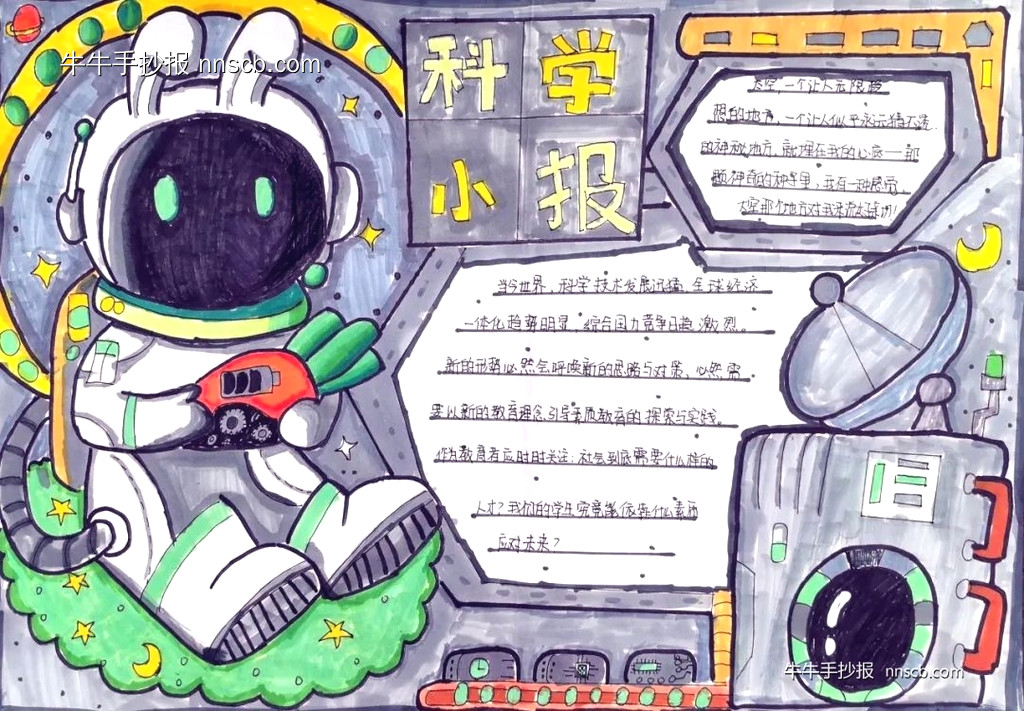 牛牛手抄报 nnscb.com
科学
小报
太空,一个让人无限遐
限的地方,一个让人似乎永远猜不透
的神秘地方,就埋在我的心底——那
颗神奇的种子里,我有一种感觉,
太空那个地方对我来说
当今世界,科学技术发展迅猛,全球经济
一体化趋势明显,综合国力竞争日趋激烈。
新的形势必然会呼唤新的思路与对策,必然需
要以新的教育理念引导素质教育的探索与实践。
作为教育者应时时关注:社会到底需要什么样的
人才?我们的学生究竟能依靠什么素质
应对未来?
牛牛手抄报 nnscb.com